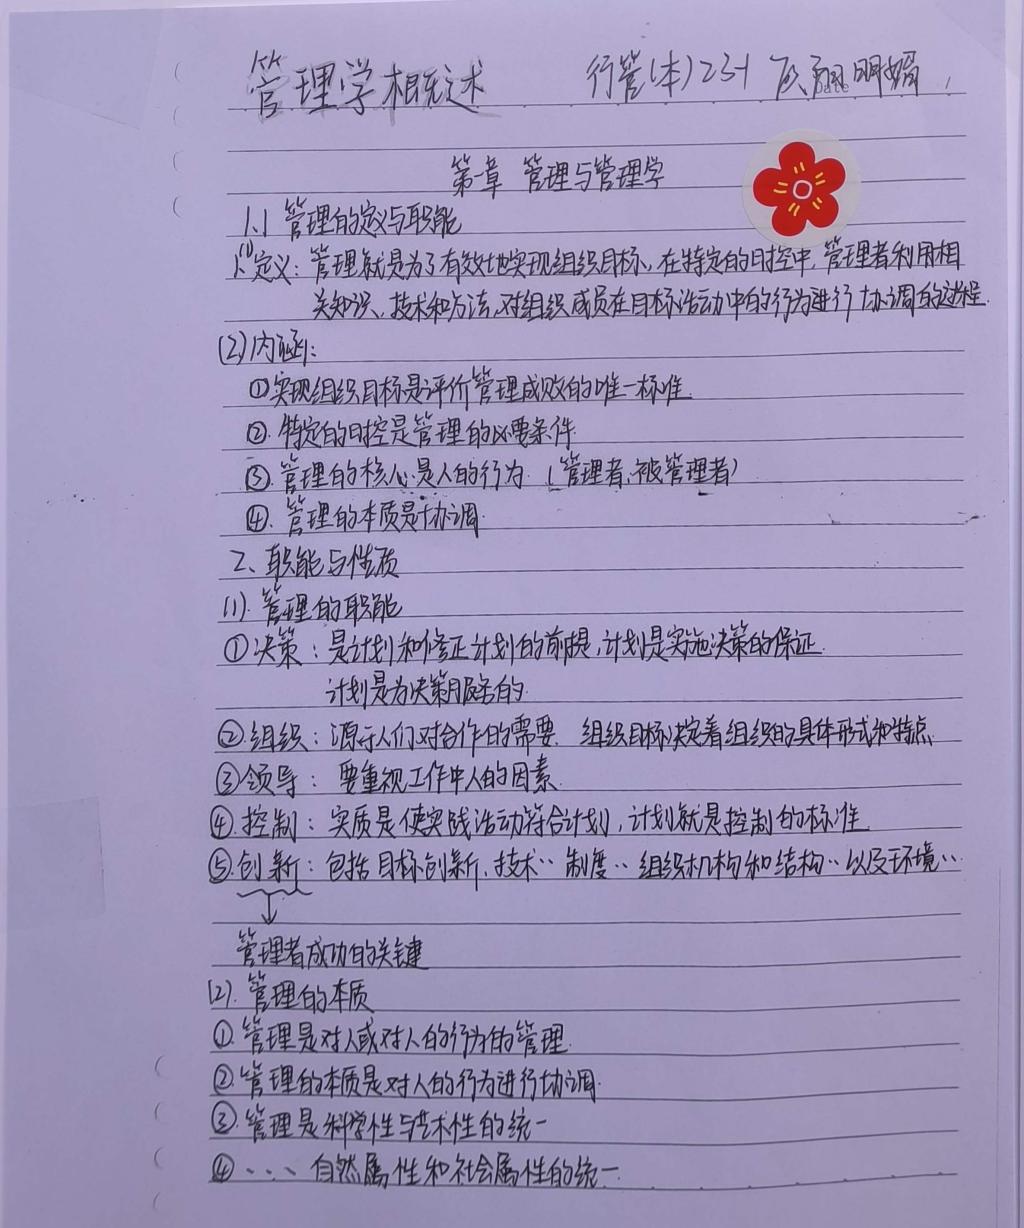 管理学概述 行管(本)23-1 明娟
第一章 管理与管理学
1.1 管理的定义与职能
(1) 定义：管理就是为了有效地实现组织目标，在特定的时空中，管理者利用相
关知识、技术和方法，对组织成员在目标活动中的行为进行协调的过程.
(2)内涵：
①实现组织目标是评价管理成败的唯一标准.
②. 特定的时空是管理的必要条件
③. 管理的核心是人的行为.（管理者、被管理者）
④. 管理的本质是协调
2、职能与性质
(1). 管理的职能
①决策：是计划和修正计划的前提，计划是实施决策的保证.
计划是为决策服务的.
②组织：源于人们对合作的需要. 组织目标决定着组织的具体形式和特点
③领导：要重视工作中人的因素.
④. 控制：实质是使实践活动符合计划，计划就是控制的标准
⑤. 创新：包括目标创新、技术‥ 制度‥ 组织机构和结构‥以及环境‥
管理者成功的关键
(2). 管理的本质
①. 管理是对人或对人的行为的管理.
②. 管理的本质是对人的行为进行协调.
③. 管理是科学性与艺术性的统一
④. . . . 自然属性和社会属性的统一